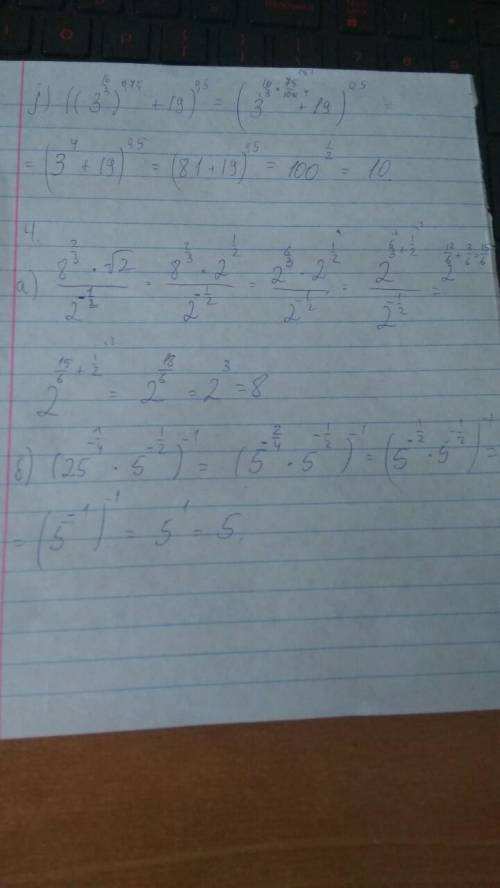 j) ((3^(16/3))^0,75 + 19)^0,5 = (3^(16/3 · 75/100) + 19)^0,5 =
= (3^4 + 19)^0,5 = (81+19)^0,5 = 100^(1/2) = 10
4.
a) (8^(2/3) · √2)/(2^(-1/2)) = (8^(2/3) · 2^(1/2))/(2^(-1/2)) = (2^(6/3) · 2^(1/2))/(2^(-1/2)) = (2^(6/3 + 1/2))/(2^(-1/2)) = 2^(12/6 + 3/6 = 15/6)
2^(15/6 + 1/2) = 2^(18/6) = 2^3 = 8
б) (25^(-1/4) · 5^(-1/2))^-1 = (5^(-2/4) · 5^(-1/2))^-1 = (5^(-1/2) · 5^(-1/2))^-1 =
= (5^-1)^-1 = 5^1 = 5.